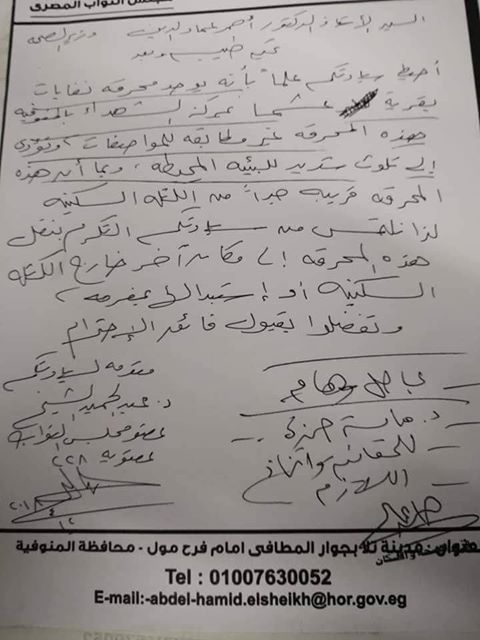 مجلس النواب المصرى
السيد الأستاذ الدكتور / أحمد عماد الدين وزير الصحة
تحيه طيبه وبعد
أحيط سيادتكم علماً بأنه يوجد محرقه نفايات
بقرية عشما بمركز الشهداء بالمنوفيه
وهذه المحرقه غير مطابقه للمواصفات وتؤدى
إلى تلوث شديد للبيئه المحيطه، وبما أن هذه
المحرقه قريبه جداً من الكتله السكنيه
لذا نلتمس من سيادتكم التكرم بنقل
هذه المحرقه إلى مكان آخر خارج الكتله
السكنيه أو إستبدالها بمفرمه
وتفضلوا بقبول فائق الإحترام
مقدمه لسيادتكم
د. عبد الحميد الشيخ
عضو مجلس النواب
عضويه ٢٢٨
٢٠١٨
عاجل وهام
د.
واتخاذ
اللازم
مدينة تلا بجوار المطافى امام فرح مول - محافظة المنوفية
Tel : 01007630052
E-mail:-abdel-hamid.elsheikh@hor.gov.eg